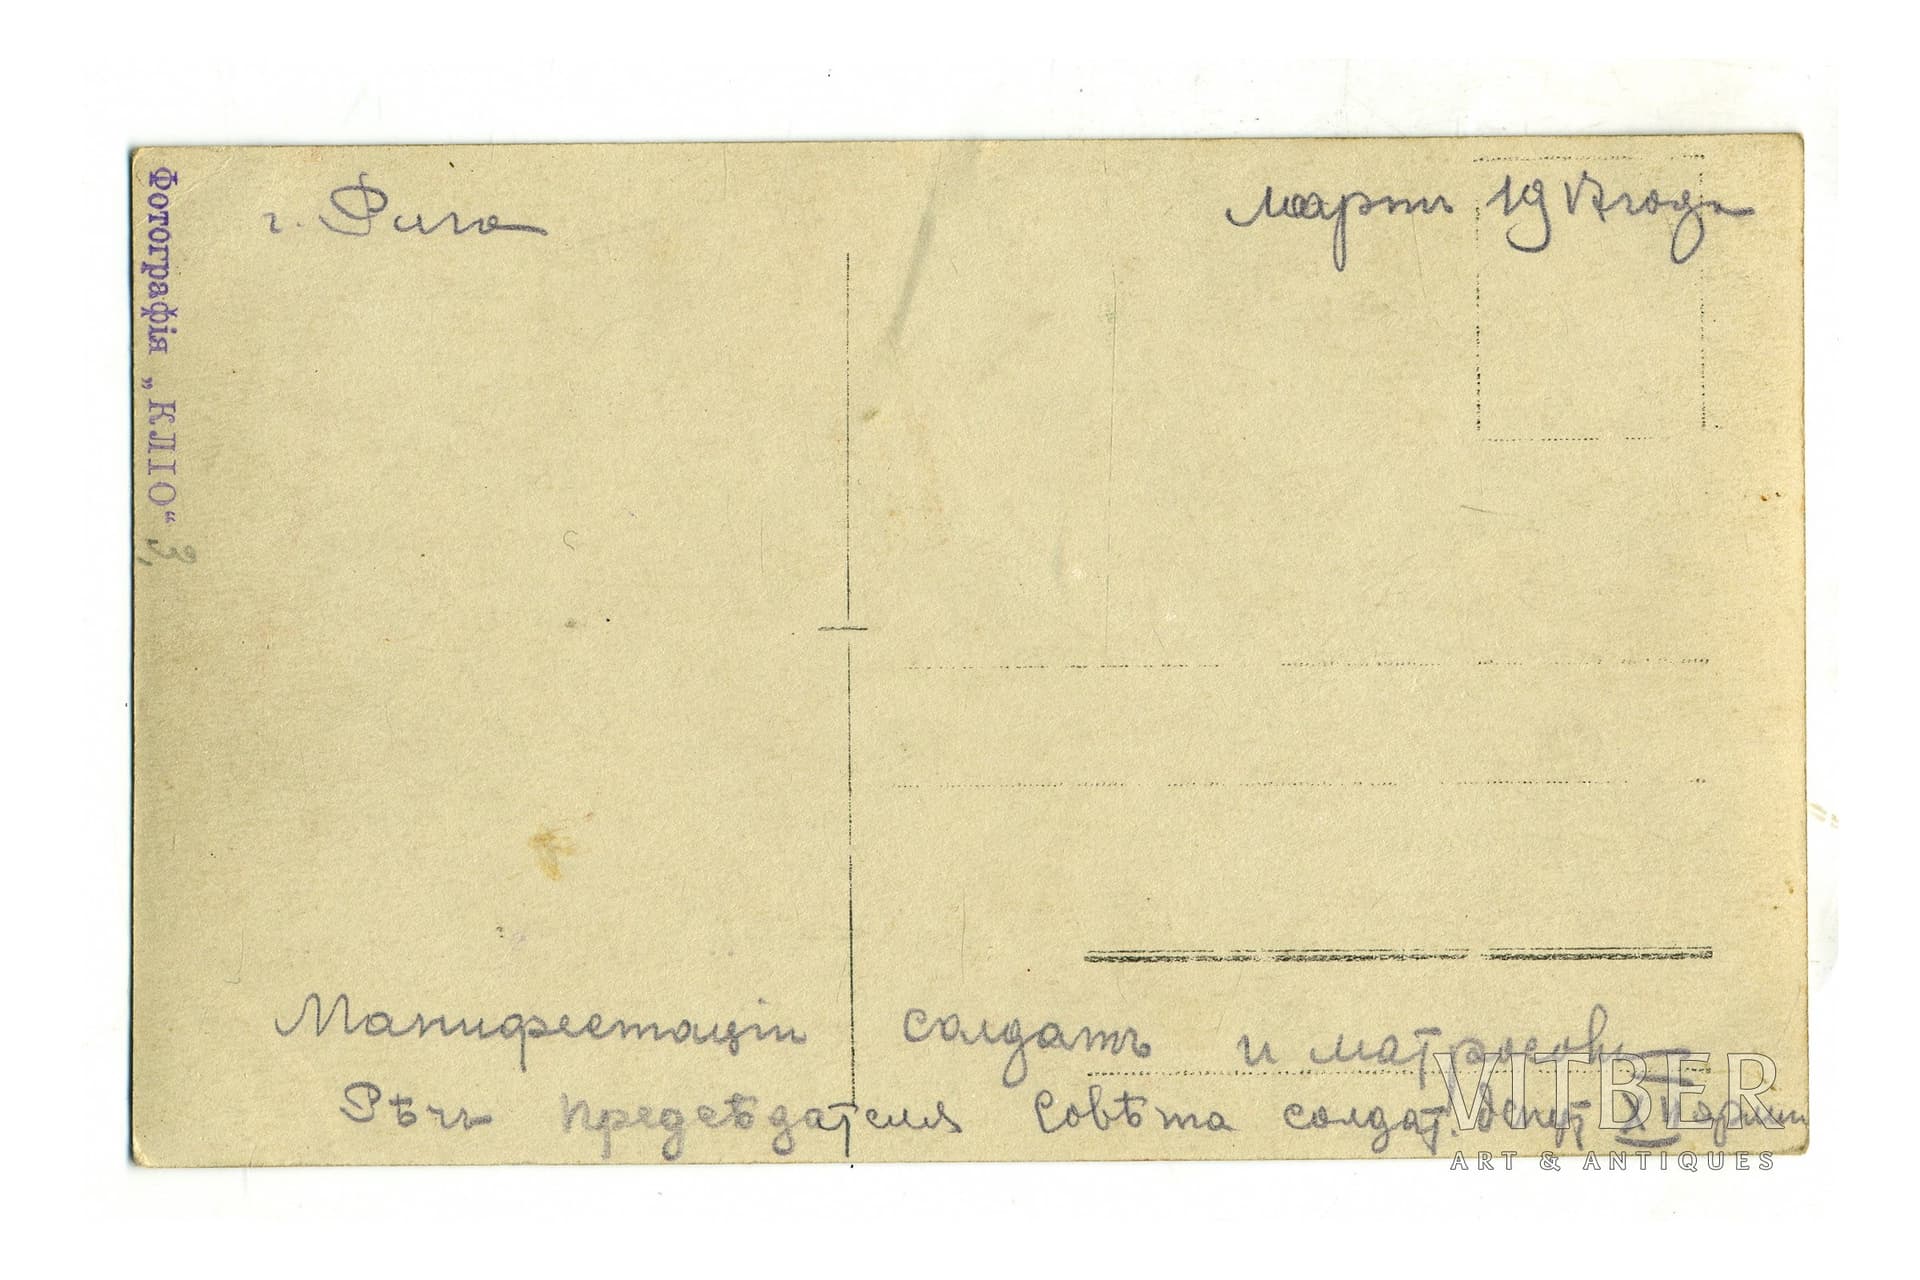 Фотографія „КЛІО“
г. Рига
мартъ 1917 года
Манифестаціи солдатъ и матросовъ
Рѣчь предсѣдателя Совѣта солдат. депут. XII арміи
VITBER
ART & ANTIQUES